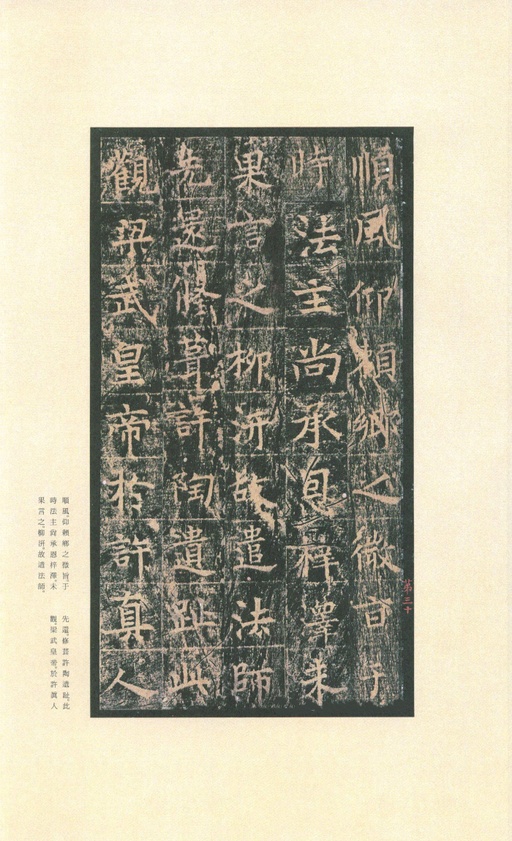 順風仰頼鄉之徵旨于
時法主尚承恩祥澤未
果言之柳汧故遣法師
先還修葺許陶遺趾此
觀梁武皇帝於許真人
第三十
順風仰賴鄉之徵旨于
時法主尚承恩祥澤未
果言之柳汧故遣法師
先還修葺許陶遺趾此
觀梁武皇帝於許真人